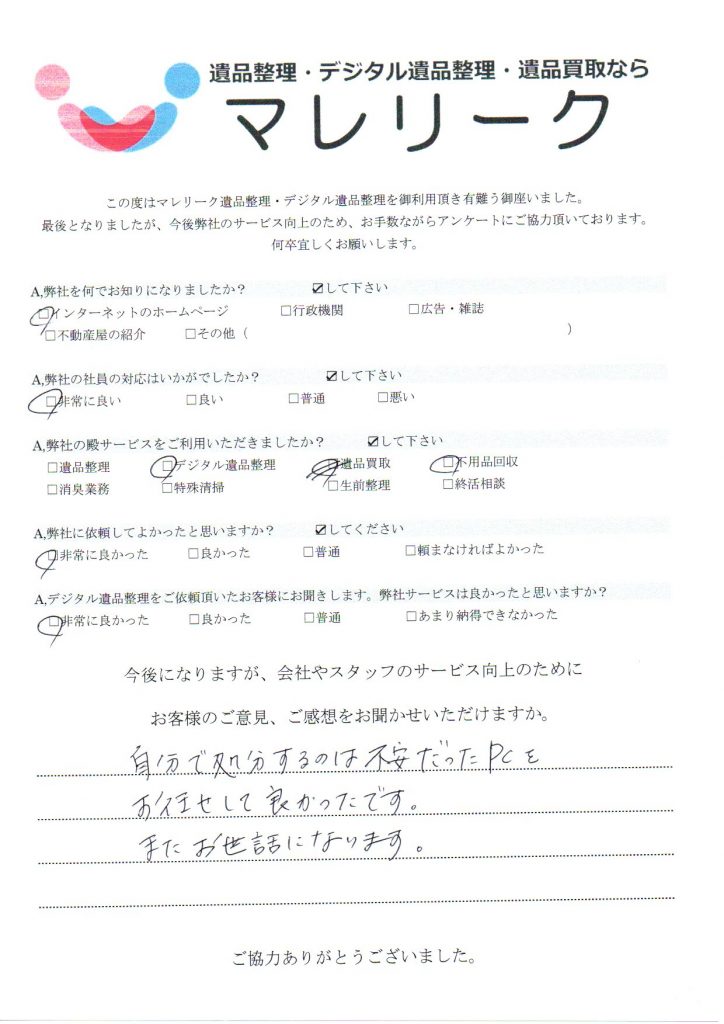 遺品整理・デジタル遺品整理・遺品買取なら
マレリーク
この度はマレリーク遺品整理・デジタル遺品整理を御利用頂き有難う御座いました。
最後となりましたが、今後弊社のサービス向上のため、お手数ながらアンケートにご協力頂いております。
何卒宜しくお願いします。
A,弊社を何でお知りになりましたか？ ☑して下さい
□インターネットのホームページ □行政機関 □広告・雑誌
□不動産屋の紹介 □その他（ ）
A,弊社の社員の対応はいかがでしたか？ ☑して下さい
□非常に良い □良い □普通 □悪い
A,弊社の殿サービスをご利用いただきましたか？ ☑して下さい
□遺品整理 □デジタル遺品整理 □遺品買取 □不用品回収
□消臭業務 □特殊清掃 □生前整理 □終活相談
A,弊社に依頼してよかったと思いますか？ ☑してください
□非常に良かった □良かった □普通 □頼まなければよかった
A,デジタル遺品整理をご依頼頂いたお客様にお聞きします。弊社サービスは良かったと思いますか？
□非常に良かった □良かった □普通 □あまり納得できなかった
今後になりますが、会社やスタッフのサービス向上のために
お客様のご意見、ご感想をお聞かせいただけますか。
自分で処分するのは不安だったPCを
お任せして良かったです。
またお世話になります。
ご協力ありがとうございました。